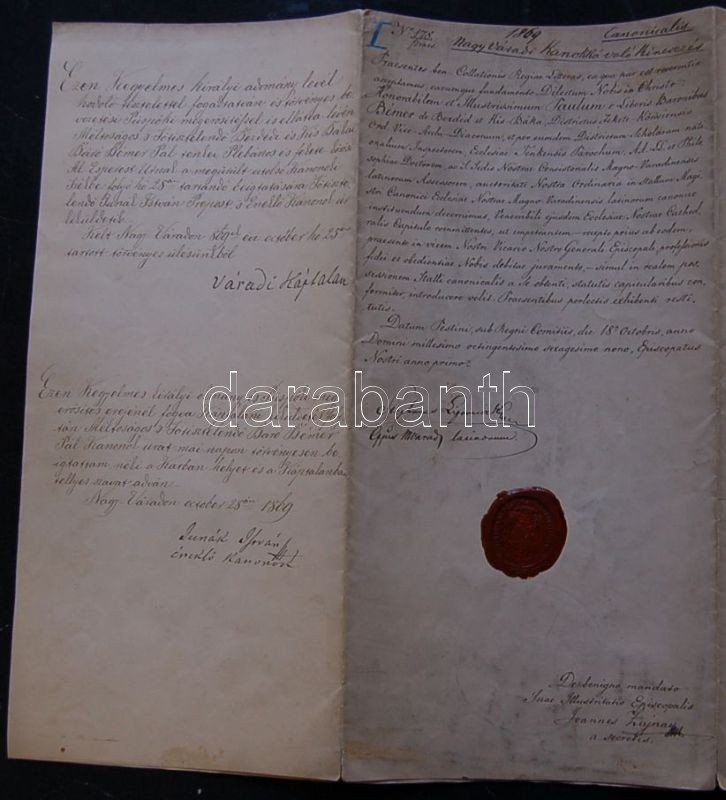 Ezen Kegyelmes királyi adomány levél
hódoló tisztelettel fogadtatván és törvényes be-
vezetési Püspöki megerősitéssel is ellátva lévén
Méltóságos s Főtisztelendő Berdedi és Kis Bákai
Báró Bémer Pál Plébános és
Al Esperest Urnak a megürült utolsó Kanonoki
Székbe folyó hó 25én tartandó beigtatására Főtiszte-
lendő István Prépost s Éneklő Kanonok úr
kiküldetik.
Kelt Nagy-Váradon 869ik évi october hó 25én
tartott törvényes ülésünkből
Váradi Káptalan
Ezen Kegyelmes királyi adomány és Püspöki meg-
erősités erejénél fogva
tán Méltóságos s Főtisztelendő Báró Bémer
Pál Kanonok urat mai napon törvényesen be-
igtattam, néki a Karban helyet és a Káptalanban
tellyes szavat adván.
Nagy-Váradon october 25én 1869
István
éneklő Kanonok
I
No 178
1869
Canonicalis
Nagy Váradi Kanokká való Kinevezés
Praesentes hen. Collationis Regiae Literas, ea qua par est reverentia
acceptamus, earumque fundamento Dilectum Nobis in Christo
Honorabilem et Illustrissimum Paulum e Liberis Baronibus
Bémer de Berded et Kis Báka, Districtus
Ord. Vice-Archi-Diaconum, et per eundem Districtum Scholarum natio-
nalium Inspectorem, Ecclesiae Tenkensis Parochum, AA. LL. et Philo-
sophiae Doctorem, ac S. Sedis Nostrae Consistorialis Magno-Varadinensis
latinorum Assessorem, authoritate Nostra Ordinaria in Stallum Magi-
stri Canonici Ecclesiae Nostrae Magno-Varadinensis latinorum canonice
instituendum decernimus, Venerabili ejusdem Ecclesiae Nostrae Cathed-
ralis Capitulo committentes, ut impetantium receptoque ab eodem,
praesente in vicem Nostri Vicario Nostro Generali Episcopale, professionis
fidei et obedientiae Nobis debitae juramento, simul in realem pos-
sessionem Stalli canonicalis a Se obtenti, statutis capitularibus con-
formiter, introducere velit. Praesentibus perlectis exhibenti resti-
tutis.
Datum Pestini, sub Regni Comitiis, die 18a Octobris, anno
Domini millesimo octingentesimo sexagesimo nono, Episcopatus
Nostri anno primo.
Stephanus
Eppus latinorum
De benigno mandato
Suae Illustritatis Episcopalis
Joannes
a secretis.
darabanth
.com